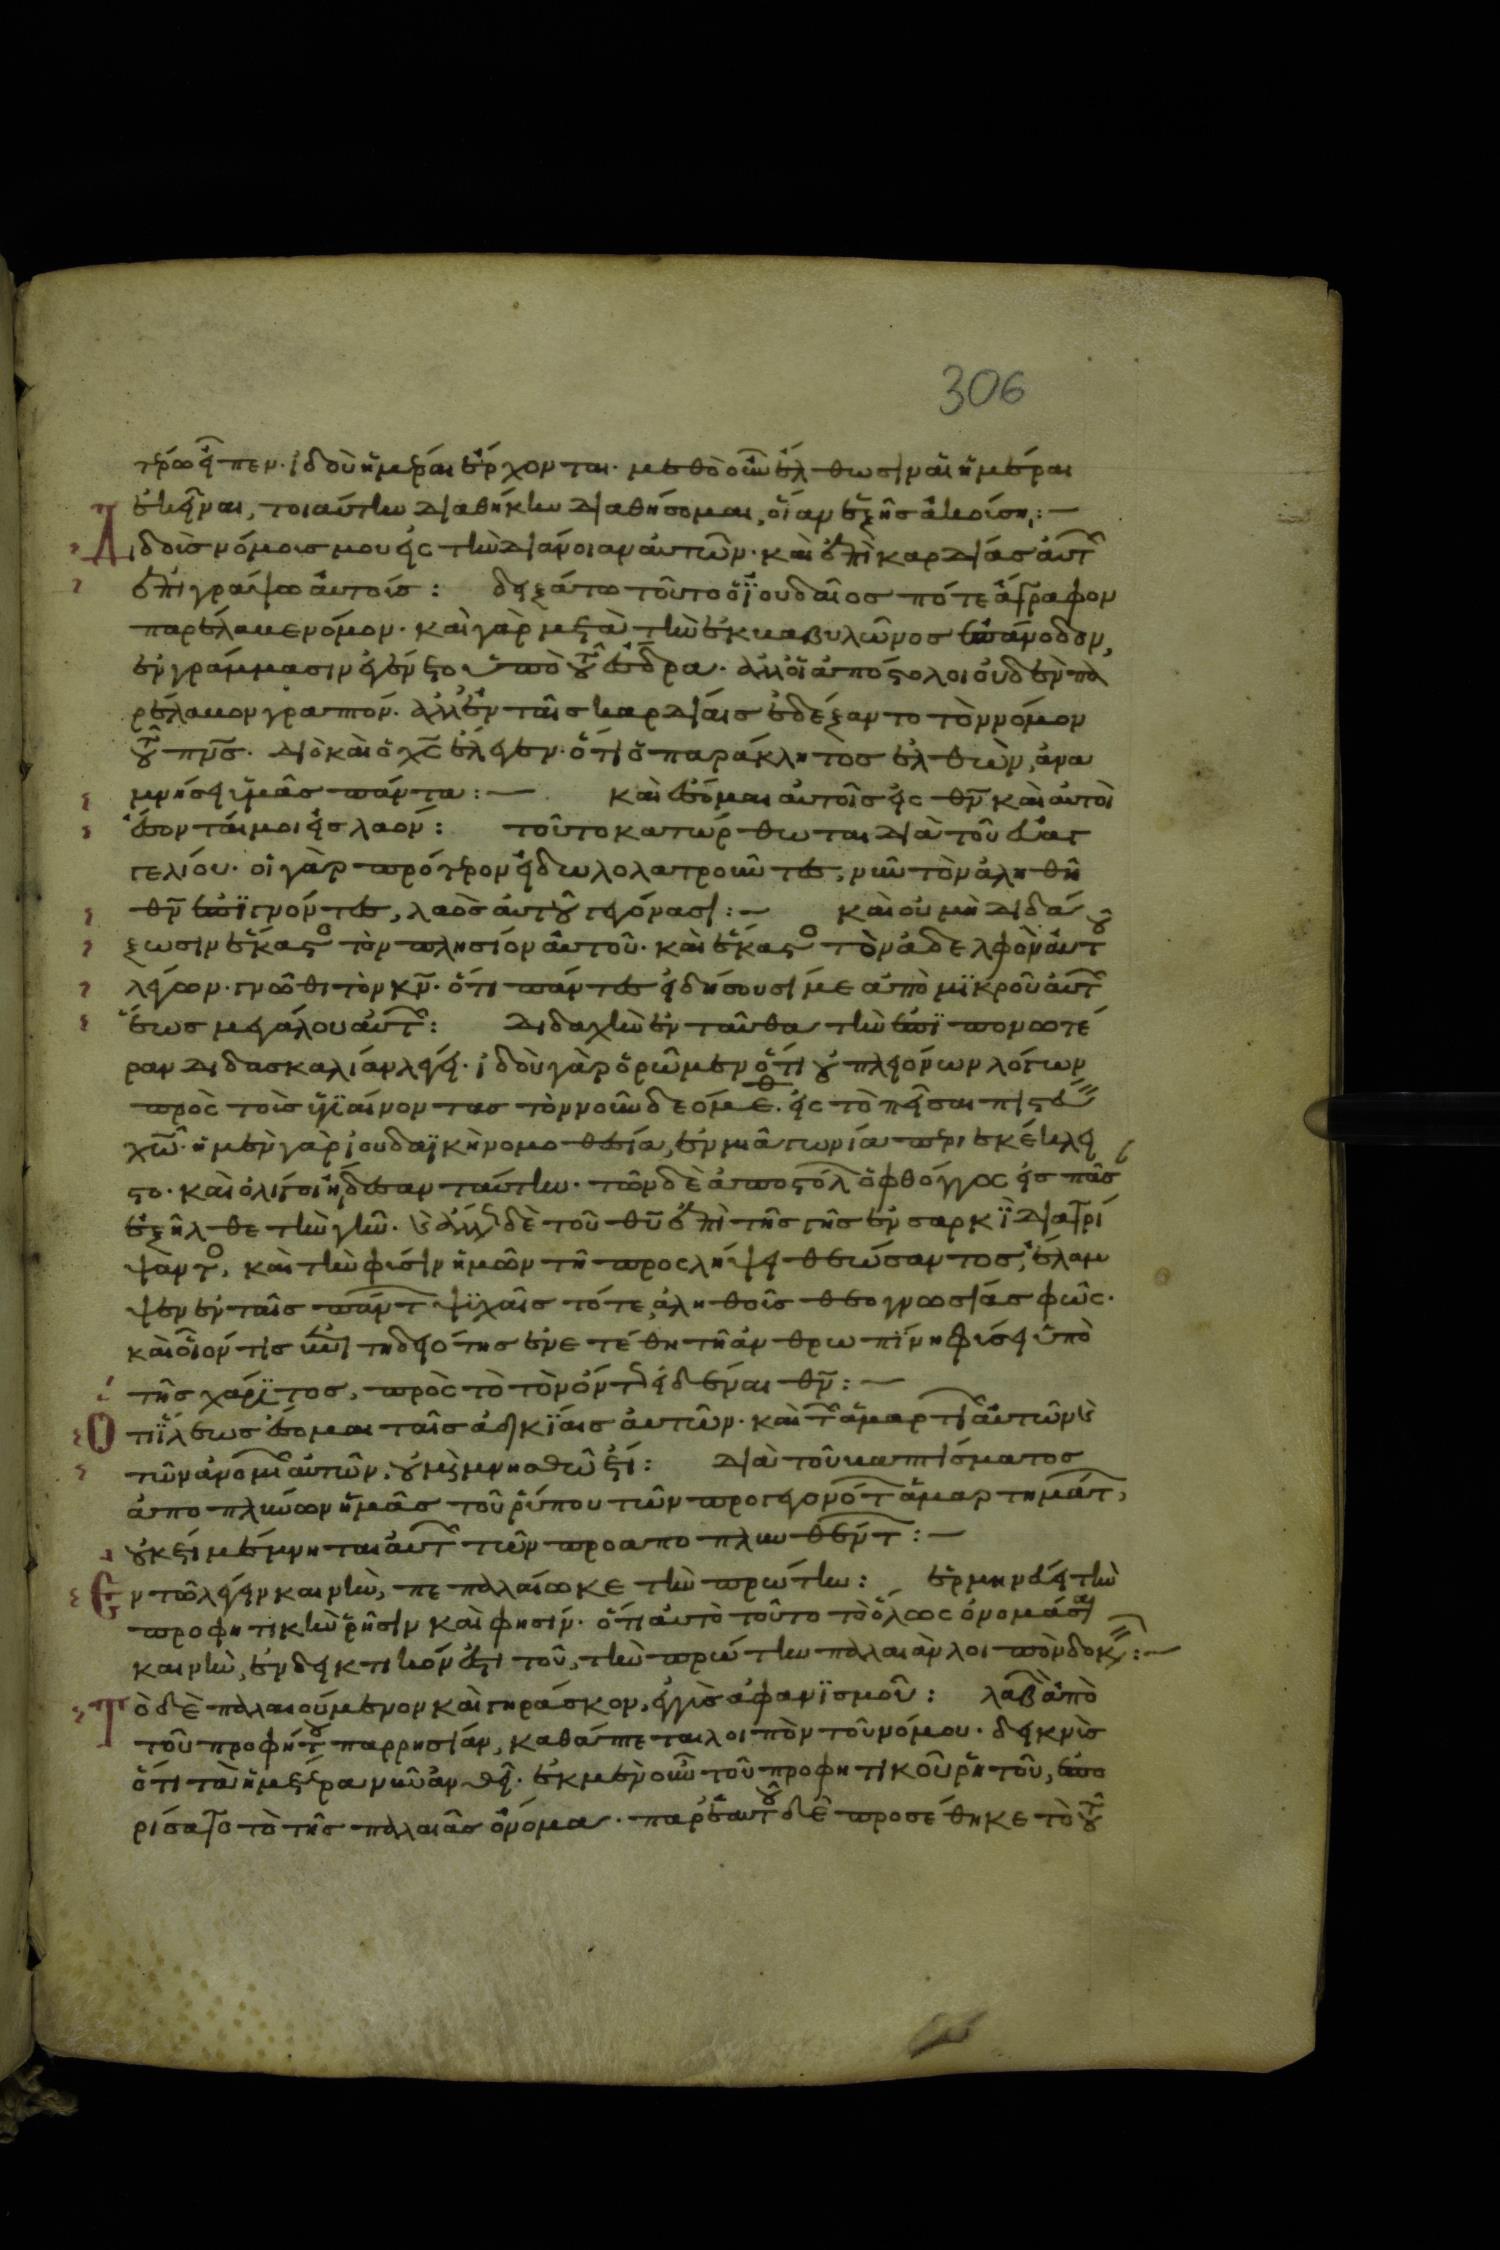 306
τέρω εἶπεν· ἰδοὺ ἡμέραι ἔρχονται· μεθὸ οὖν ἔλθωσιν αἱ ἡμέραι
ἐκεῖναι, τοιαύτην διαθήκην διαθήσομαι, οἵαν ἑξῆς ἀκούση:—
Διδοὺς νόμους μου εἰς τὴν διάνοιαν αὐτῶν· καὶ ἐπὶ καρδίας αὐτ
ἐπιγράψω αὐτούς: δειξάτω τοῦτο ὁ ἰουδαῖος πότε ἄγραφον
παρέλαβε νόμον· καὶ γὰρ μετὰ τὴν ἐκ βαβυλῶνος ἐπάνοδον,
ἐν γράμμασιν ἐγένετο ὑπὸ τοῦ ἔσδρα· ἀλλ οἱ ἀπόστολοι οὐδὲν πα
ρέλαβον γραπτόν· ἀλλ ἐν ταῖς καρδίαις ἐδέξαντο τὸν νόμον
τοῦ πνς· διὸ καὶ ὁ χς ἔλεγεν· ὅτι ὁ παράκλητος ἐλθὼν, ἀνα
μνήσει ὑμᾶς πάντα:— καὶ ἔσομαι αὐτοῖς εἰς θν καὶ αὐτοὶ
ἔσονταί μοι εἰς λαόν: τοῦτο κατώρθωται διὰ τοῦ εὐαγ
γελίου· οἱ γὰρ πρότερον εἰδωλολατροῦντες, νῦν τὸν ἀληθῆ
θν ἐπιγνόντες, λαὸς αὐτοῦ γεγόνασι:— καὶ οὐ μὴ διδά
ξωσιν ἕκαστος τὸν πλησίον αὐτοῦ· καὶ ἕκαστος τὸν ἀδελφὸν αὐτοῦ
λέγων· γνῶθι τὸν κν· ὅτι πάντες εἰδήσουσί με ἀπὸ μικροῦ αὐτ
ἕως μεγάλου αὐτ: διδαχὴν ἐνταῦθα τὴν ἐπιπονωτέ
ραν διδασκαλίαν λέγει· ἰδοὺ γὰρ ὁρῶμεν ὅτι οὐ πλειόνων λόγων
πρὸς τοὺς ὑγιαίνοντας τὸν νοῦν δεόμεθ· εἰς τὸ πεῖσαι πιστεύειν
χω· ἡ μὲν γὰρ ἰουδαϊκὴ νομοθεσία, ἐν μιᾶ γωνία περιεκέκλει
στο· καὶ ὀλίγοι ἤδεσαν ταύτην· τῶν δὲ ἀποστόλ ὁ φθόγγος εἰς πᾶσ
ἐξῆλθε τὴν γῆν· ἢ ἄλλως δὲ τοῦ θυ ἐπὶ τῆς γῆς ἐν σαρκὶ διατρί
ψαντος, καὶ τὴν φύσιν ἡμῶν τῆ προσλήψει θεώσαντος, ἔλαμ
ψεν ἐν ταῖς πάντ ψυχαῖς τότε, ἀληθοῦς θεογνωσίας φῶς·
καὶ οἷόν τις ἐπιτηδειότης ἐνετέθη τῆ ἀνθρωπίνη φύσει ὑπὸ
τῆς χάριτος, πρὸς τὸ τὸν ὄντως εἰδέναι θν:—
Ὅτι ἵλεως ἔσομαι ταῖς ἀδικίαις αὐτῶν· καὶ τῶν ἁμαρτιῶν αὐτῶν καὶ
τῶν ἀνομιῶν αὐτῶν, οὐ μὴ μνησθῶ ἔτι: διὰ τοῦ βαπτίσματος
ἀποπλύνων ἡμᾶς τοῦ ῥύπου τῶν προγεγονότ ἁμαρτημάτ,
οὐκέτι μέμνηται αὐτ τῶν προαποπλυθέντ:—
Ἐν τῶ λέγειν καινὴν, πεπαλαίωκε τὴν πρώτην: ἑρμηνεύει τὴν
προφητικὴν ῥῆσιν καὶ φησίν· ὅτι αὐτὸ τοῦτο τὸ ὅλως ὀνομάσαι
καινὴν, ἐνδεικτικόν ἐστι τοῦ, τὴν πρώτην παλαιὰν λοιπὸν δοκεῖν:—
Τὸ δὲ παλαιούμενον καὶ γηράσκον, ἐγγὺς ἀφανισμοῦ: λαβὼν ἀπὸ
τοῦ προφήτου παρρησίαν, καθάπτεται λοιπὸν τοῦ νόμου· δεικνὺς
ὅτι τὰ ἡμέτερα νῦν ἀνθεῖ· ἐκ μὲν οὖν τοῦ προφητικοῦ ῥητοῦ, ἐπο
ρίσατο τὸ τῆς παλαιᾶς ὄνομα· παρ ἑαυτοῦ δὲ προσέθηκε τὸ τοῦ